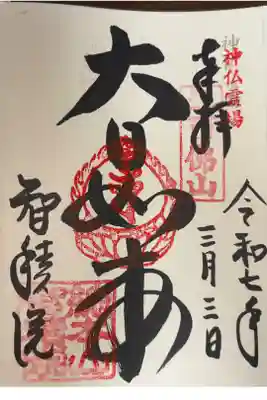 奉拝
神仏霊場
令和七年
三月三日
大日如来
智積院